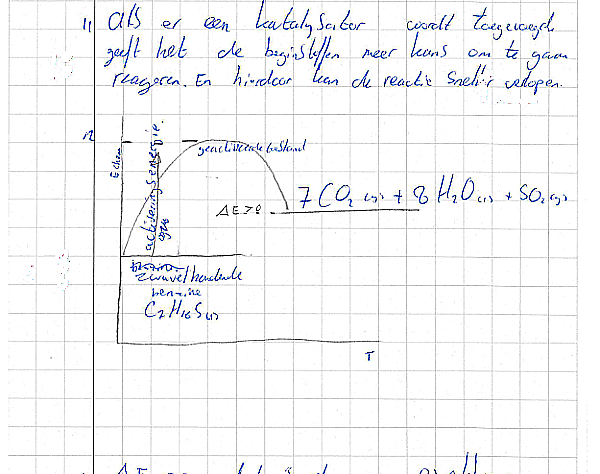 11 Als er een katalysator wordt toegevoegd
geeft het de beginstoffen meer kans om te gaan
reageren. En hierdoor kan de reactie sneller verlopen.
12
E chem
activeringsenergie.
geactiveerde toestand
ΔE>0
7CO₂ (g) + 8 H₂O (l) + SO₂ (g)
zwavelhoudende
benzine
C₇H₁₆S (l)
T